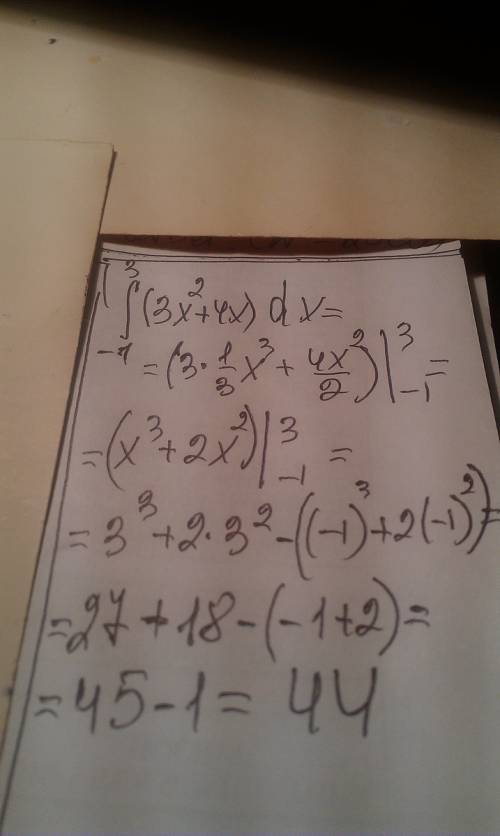 ∫₋₁³(3x²+4x) dx=
=(3·1/3x³+4x²/2)|₋₁³=
=(x³+2x²)|₋₁³=
=3³+2·3²-((-1)³+2(-1)²)=
=27+18-(-1+2)=
=45-1=44